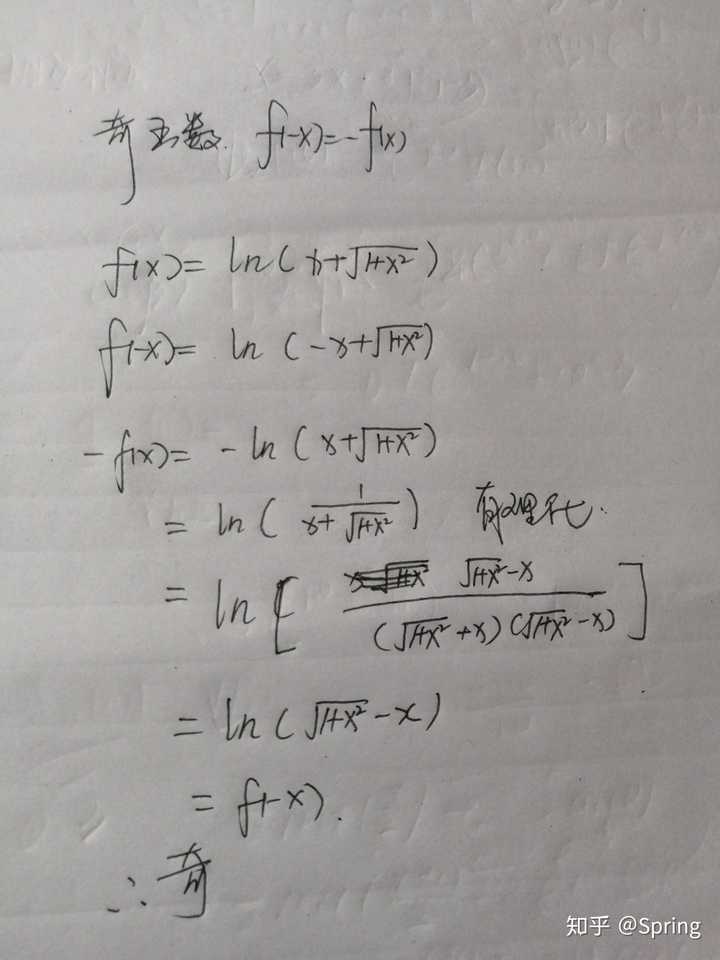 奇函数. f(-x)=-f(x)
f(x)= ln(x+√(1+x²))
f(-x)= ln(-x+√(1+x²))
-f(x)= -ln(x+√(1+x²))
= ln(1/(x+√(1+x²))) 有理化.
= ln[(√(1+x²)-x)/((√(1+x²)+x)(√(1+x²)-x))]
= ln(√(1+x²)-x)
= f(-x).
∴奇
知乎 @Spring